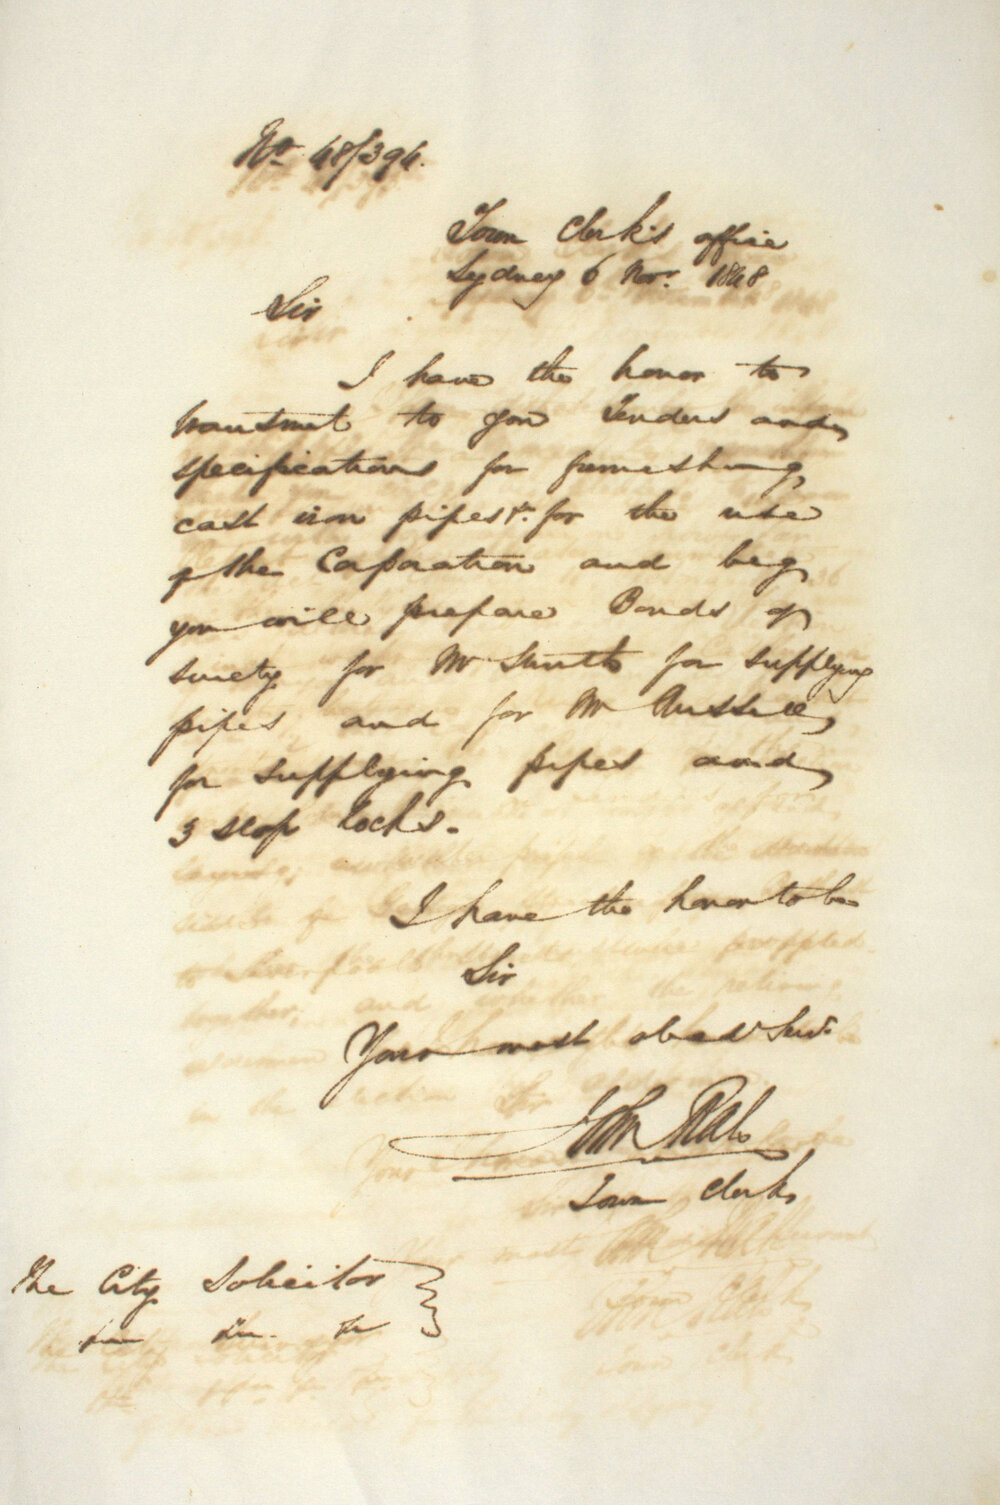 No. 48/394.
Town Clerk's office
Sydney 6 Novr. 1848
Sir
I have the honor to
transmit to you Tenders and
specifications for furnishing
cast iron pipes &c. for the use
of the Corporation and beg
you will prepare Bonds of
surety for Mr Smith for supplying
pipes and for Mr Russell
for supplying pipes and
3 stop Cocks.
I have the honor to be
Sir
Your most obedt Servt
John Rae
Town Clerk
The City Solicitor
&c &c. &c